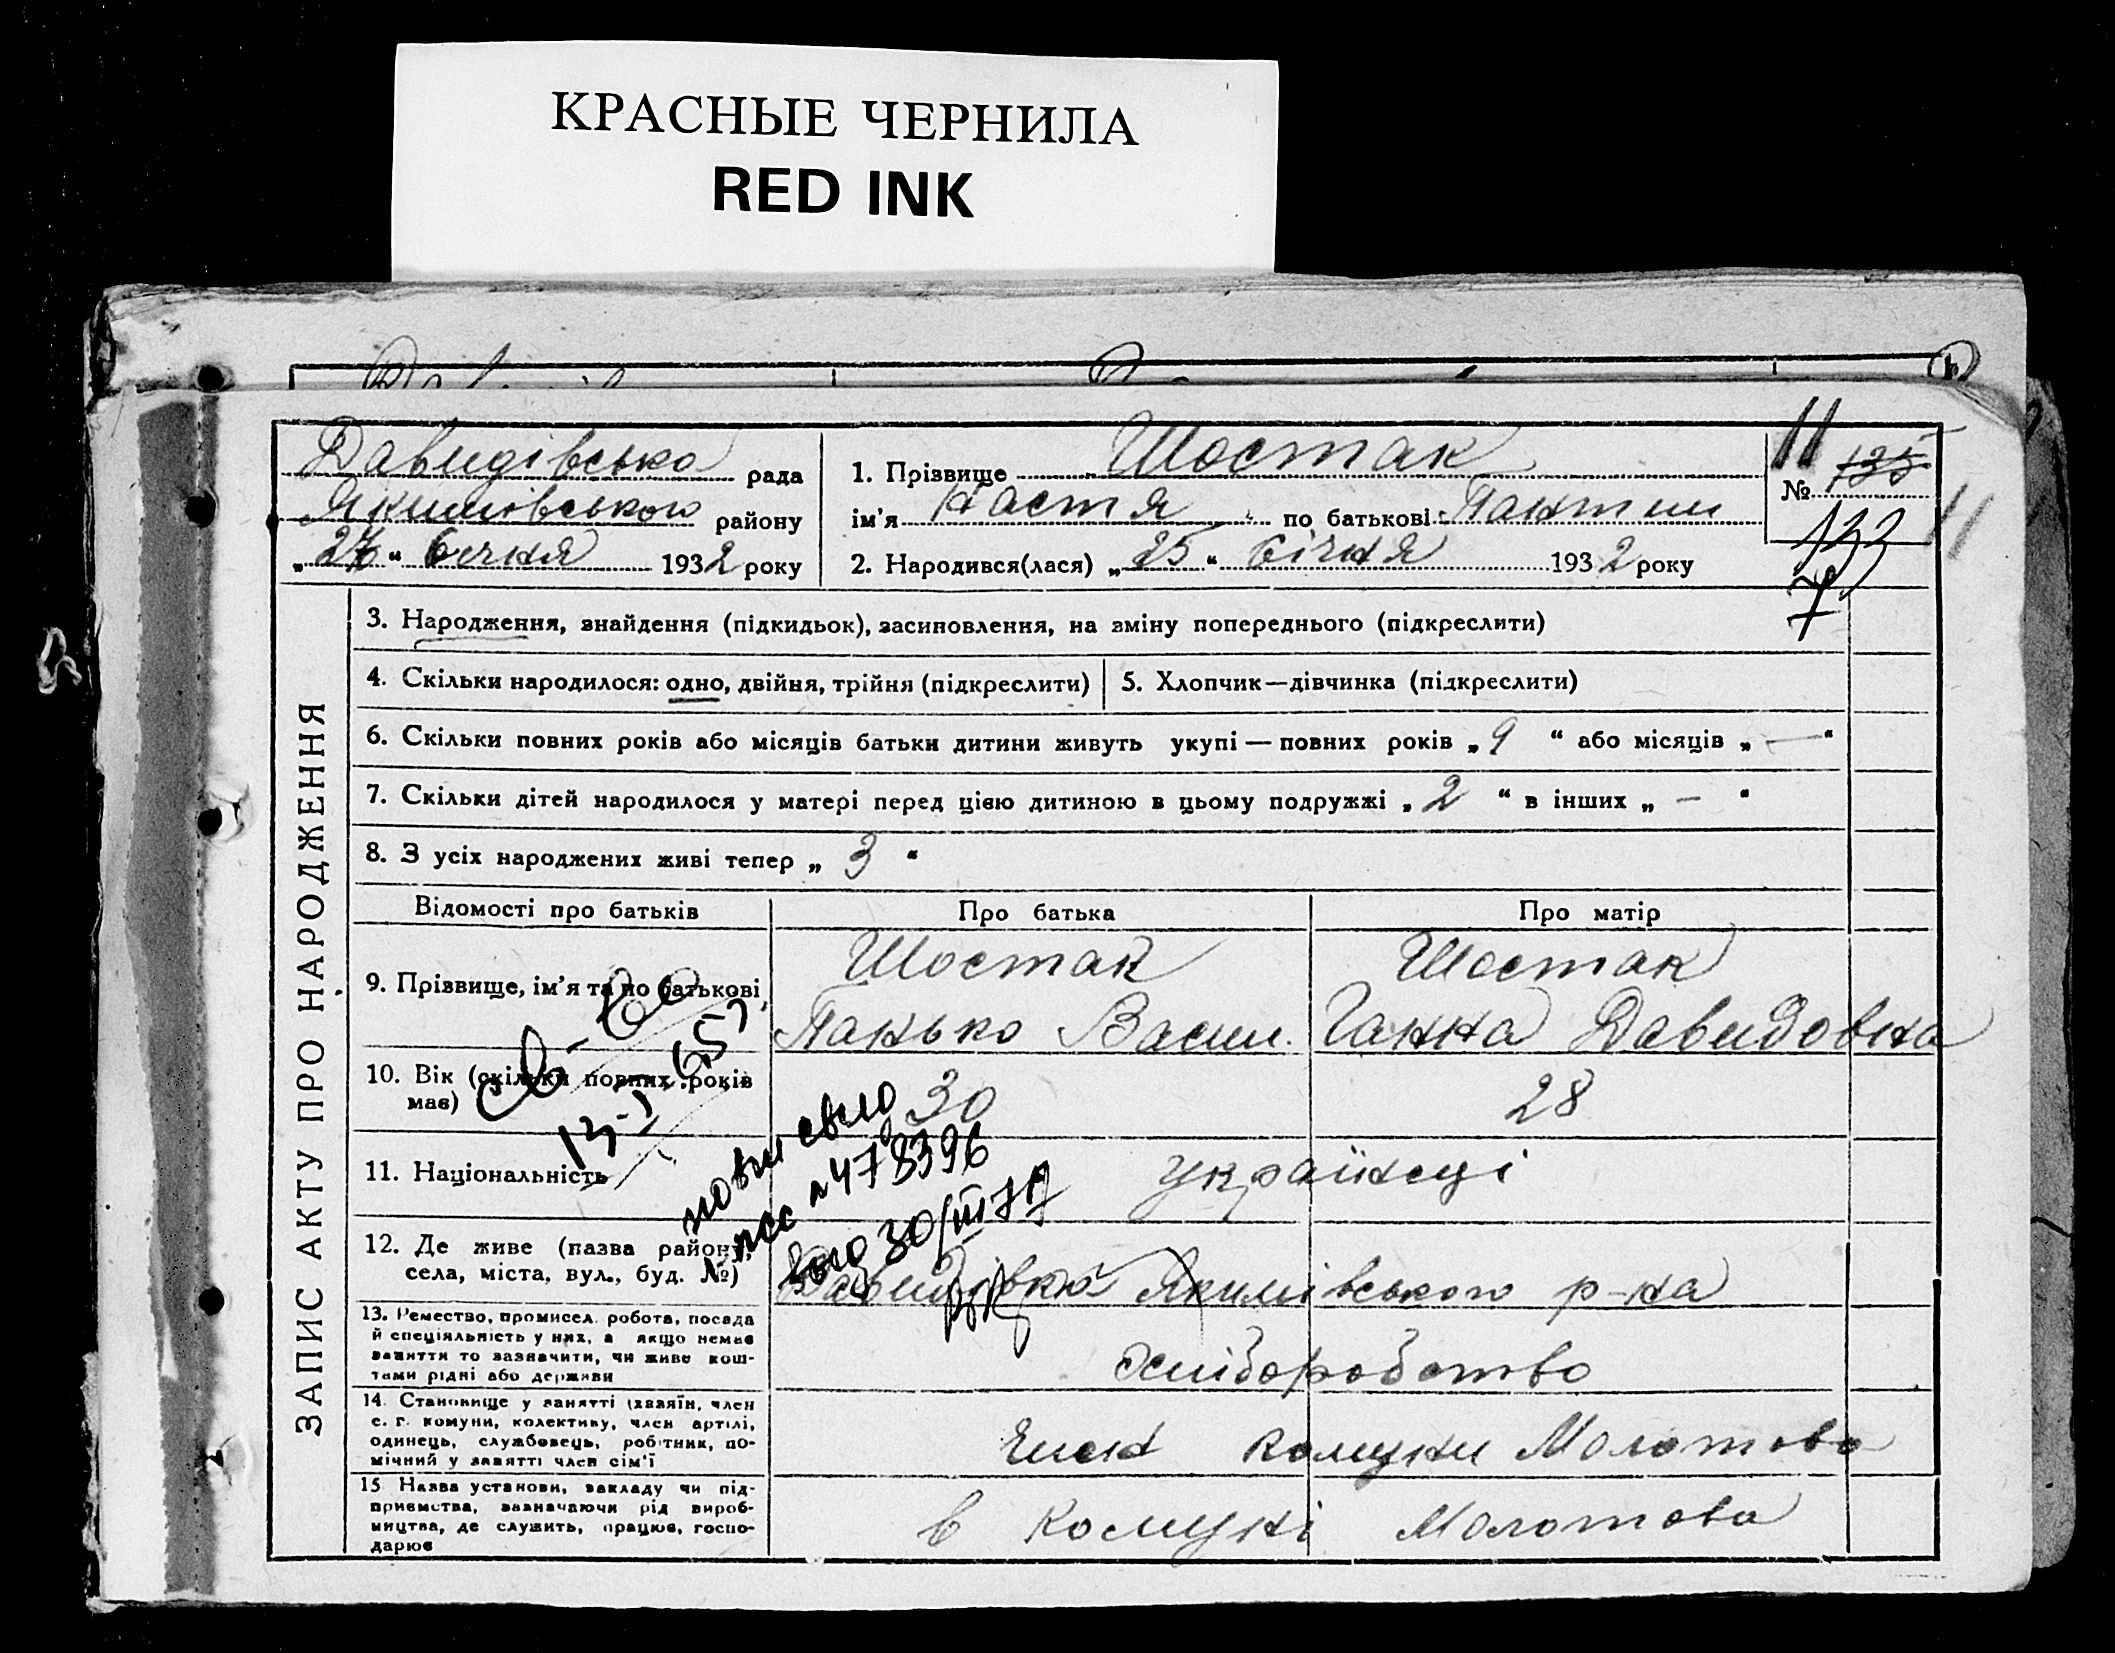 КРАСНЫЕ ЧЕРНИЛА
RED INK
Давидівська рада
Якимівського району
„26“ січня 1932 року
1. Прізвище Шостак
ім'я Настя по батькові
2. Народився(лася) „25“ січня 1932 року
11
№ 135
133
7
11
ЗАПИС АКТУ ПРО НАРОДЖЕННЯ
3. Народження, знайдення (підкидьок), засиновлення, на зміну попереднього (підкреслити)
4. Скільки народилося: одно, двійня, трійня (підкреслити)
5. Хлопчик—дівчинка (підкреслити)
6. Скільки повних років або місяців батьки дитини живуть укупі — повних років „9“ або місяців „—“
7. Скільки дітей народилося у матері перед цією дитиною в цьому подружжі „2“ в інших „—“
8. З усіх народжених живі тепер „3“
Відомості про батьків
Про батька
Про матір
9. Прізвище, ім'я та по батькові
Шостак
Панько Васил.
Шостак
Ганна Давидовна
10. Вік (скільки повних років має)
30
28
11. Національність
Українці
12. Де живе (назва району, села, міста, вул., буд. №)
Давидівка Якимівського р-на
13. Ремество, промисел, робота, посада
й спеціяльність у них, а якщо немає
заняття то зазначити, чи живе кош-
тами рідні або держави
Хліборобство
14. Становище у занятті (хазяїн, член
с. г. комуни, колективу, член артілі,
одинець, службовець, робітник, по-
мічний у занятті член сім'ї
Член комуни Молотова
15 Назва установи, закладу чи під-
приємства, зазначаючи рід вироб-
ництва, де служить, працює, госпо-
дарює
в комуні Молотова
№ 478396
30/III